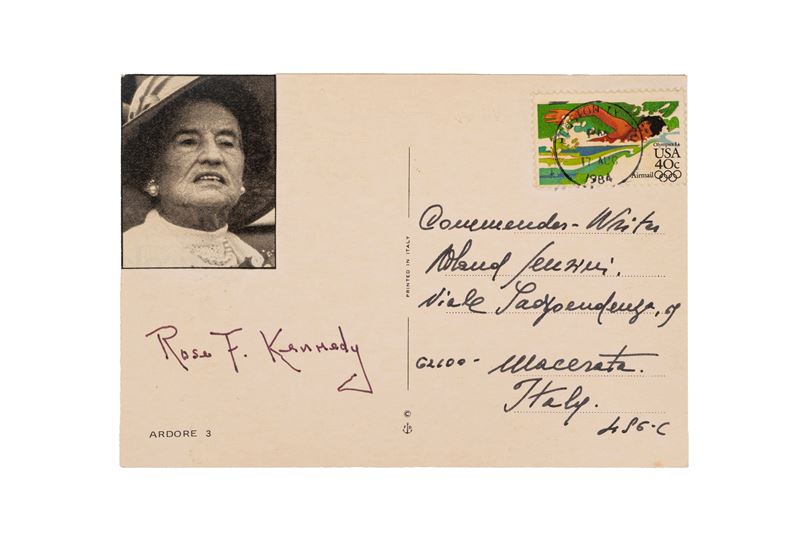 Olympics 84
USA
40c
Airmail
17 AUG
1984
Commender - Writer
Viale Indipendenza, 9
62100 - Macerata.
Italy.
486-C
PRINTED IN ITALY
Rose F. Kennedy
©
ARDORE 3